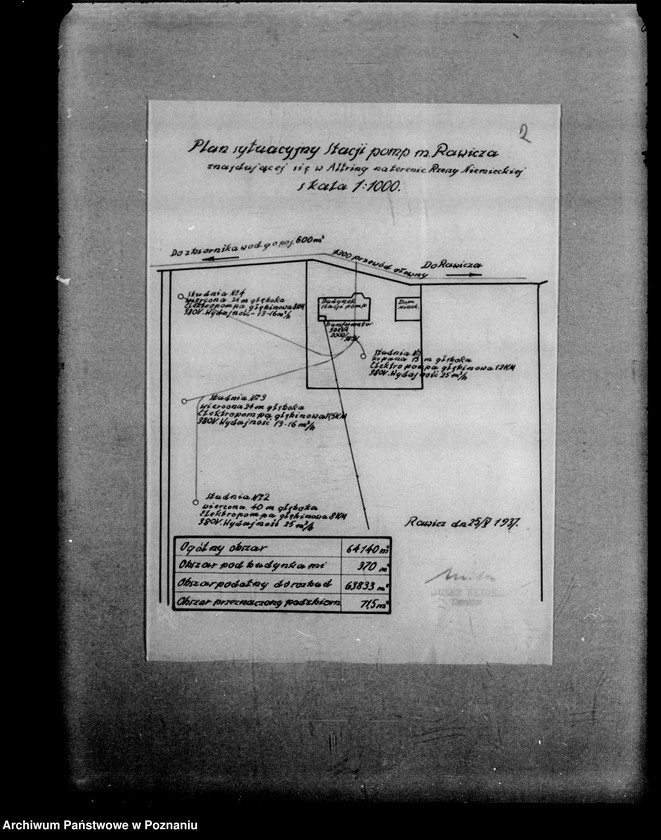 2
Plan sytuacyjny Stacji pomp m. Rawicza
znajdującej się w Altriny na terenie Rzeszy Niemieckiej
skala 1:1000.
Do zbiornika wod g o poj. 600 m³
przewód główny
Do Rawicza
Studnia № 4
wiercona 24 m głęboka
Elektropompa głębinowa 8KM
380V. Wydajność - 13-16 m³/h
Budynek
Stacji pomp
Dom
Transformator
Studnia №1
kopana 15 m głęboka
Elektropompa głębinowa 12KM
380V. Wydajność 25 m³/h
Studnia № 3
wiercona 24 m głęboka
Elektropompa głębinowa 11,5KM
380V. Wydajność 13-16 m³/h
Studnia № 2
wiercona 40 m głęboka
Elektropompa głębinowa 8KM
380V. Wydajność 25 m³/h
Rawicz dn. 25/X 1937.
Ogólny obszar 64140 m²
Obszar pod budynkami 370 m²
Obszar podatny do rozbud 63833 m²
Obszar przeznaczony pod zbiorn 71,5 m²
Archiwum Państwowe w Poznaniu